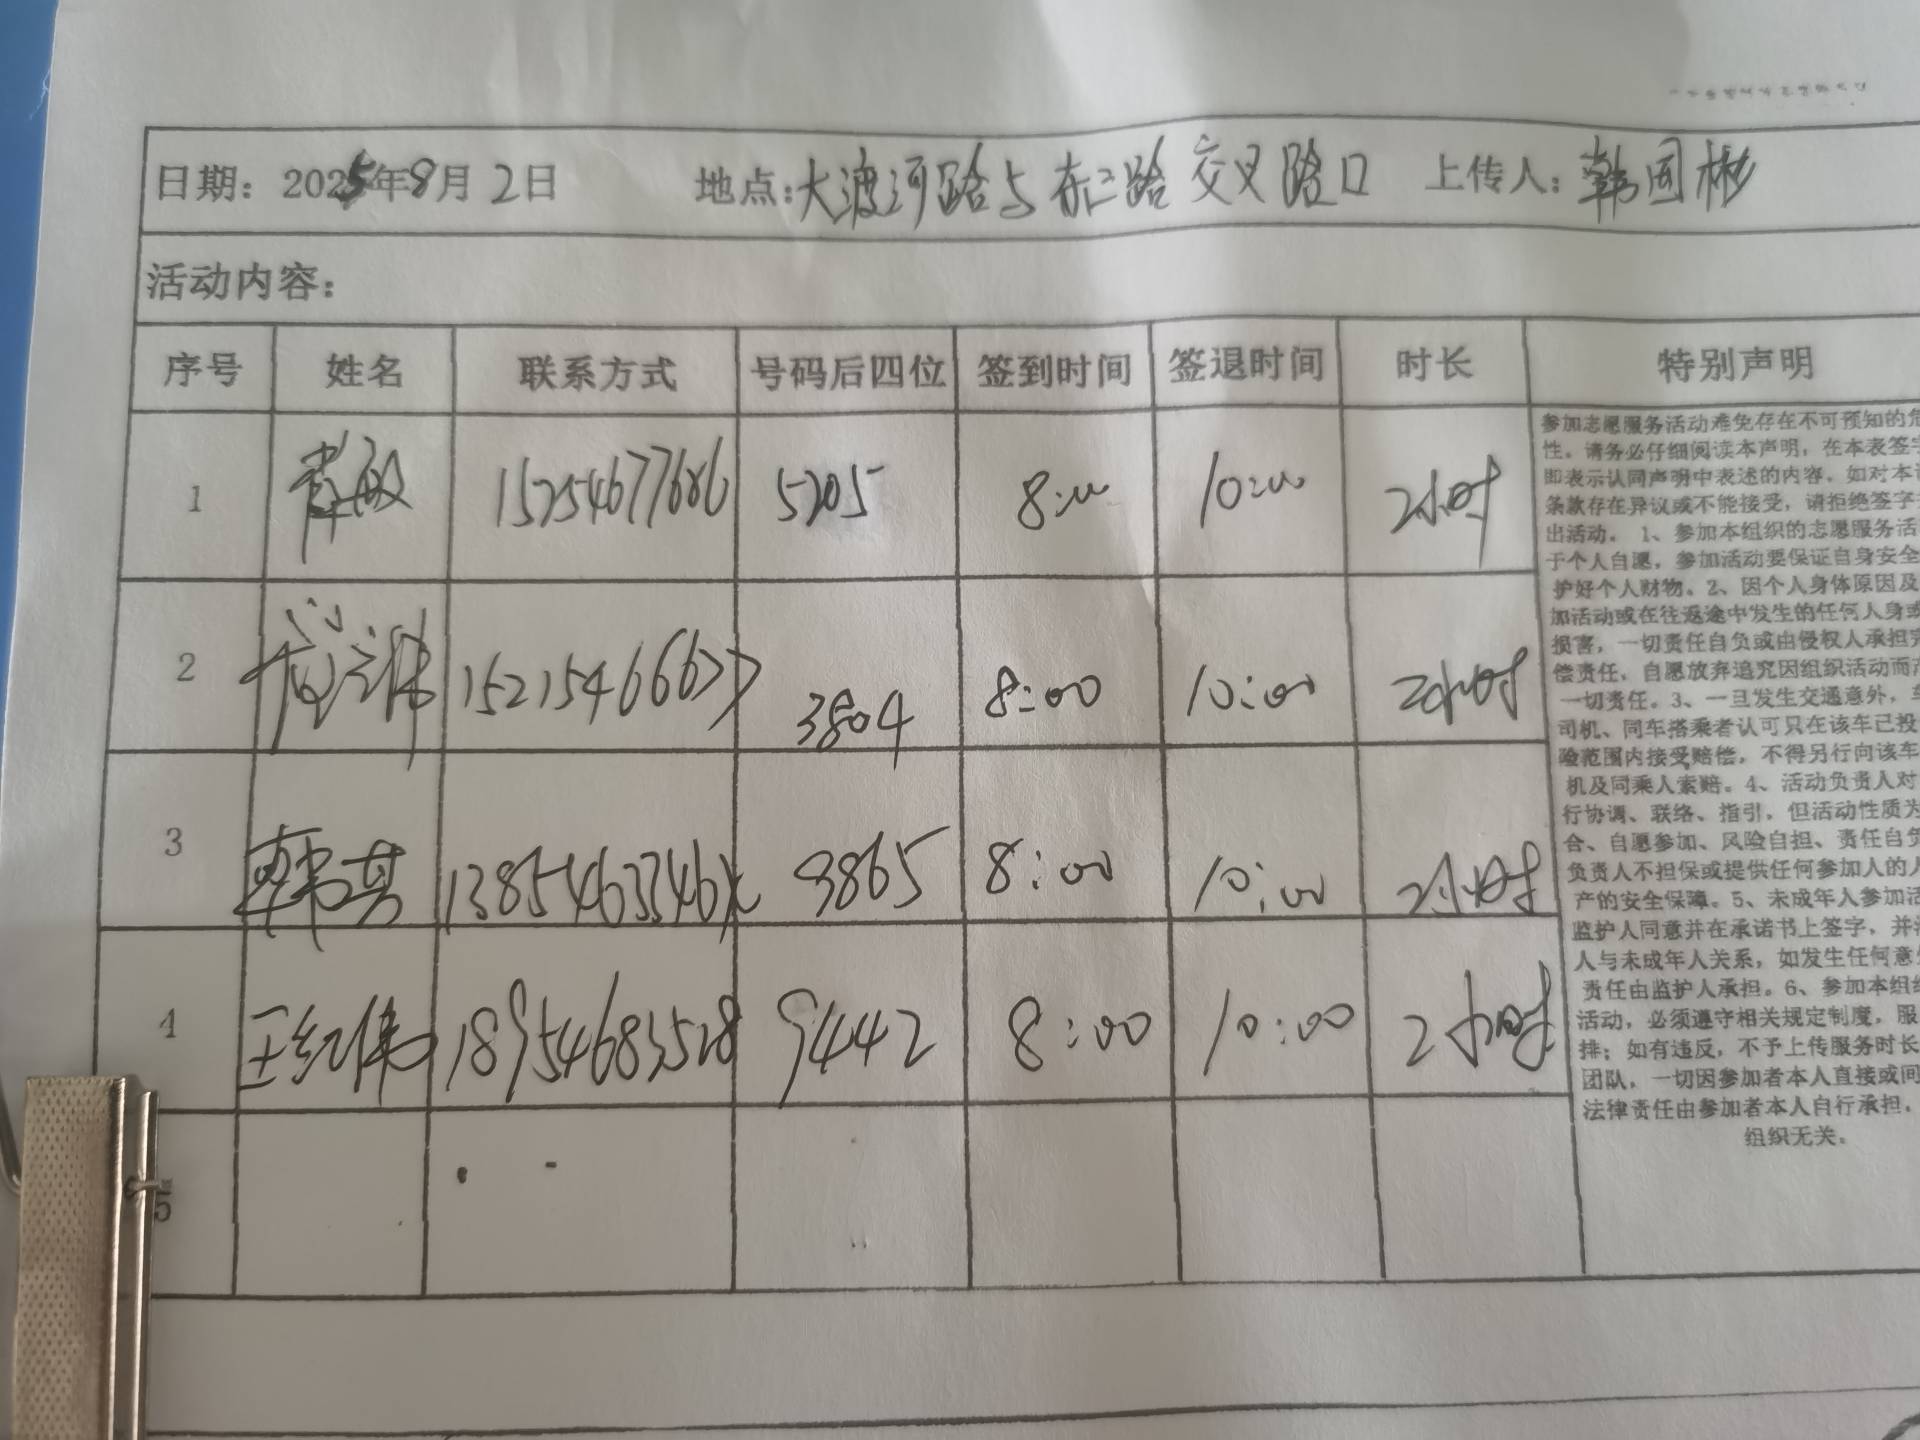 日期：2025年8月2日 地点：大渡河路与东二路交叉路口 上传人：韩国彬
活动内容：
序号 姓名 联系方式 号码后四位 签到时间 签退时间 时长 特别声明
1 15254677686 5205 8:00 10:00 2小时
2 15215466677 3804 8:00 10:00 2小时
3 韩其 9865 8:00 10:00 2小时
4 王红伟 18954683528 9442 8:00 10:00 2小时
5
参加志愿服务活动难免存在不可预知的危
性。请务必仔细阅读本声明，在本表签字
即表示认同声明中表述的内容，如对本
条款存在异议或不能接受，请拒绝签字
出活动。 1、参加本组织的志愿服务活
于个人自愿，参加活动要保证自身安全
护好个人财物。2、因个人身体原因及
加活动或在往返途中发生的任何人身或
损害，一切责任自负或由侵权人承担
偿责任，自愿放弃追究因组织活动而
一切责任。3、一旦发生交通意外，
司机、同车搭乘者认可只在该车已投
险范围内接受赔偿，不得另行向该车
机及同乘人索赔。4、活动负责人对
行协调、联络、指引，但活动性质为
合、自愿参加、风险自担、责任自负
负责人不担保或提供任何参加人的人
产的安全保障。5、未成年人参加活
监护人同意并在承诺书上签字，并
人与未成年人关系，如发生任何意
责任由监护人承担。6、参加本组织
活动，必须遵守相关规定制度，服
排；如有违反，不予上传服务时长
团队，一切因参加者本人直接或间
法律责任由参加者本人自行承担，
组织无关。